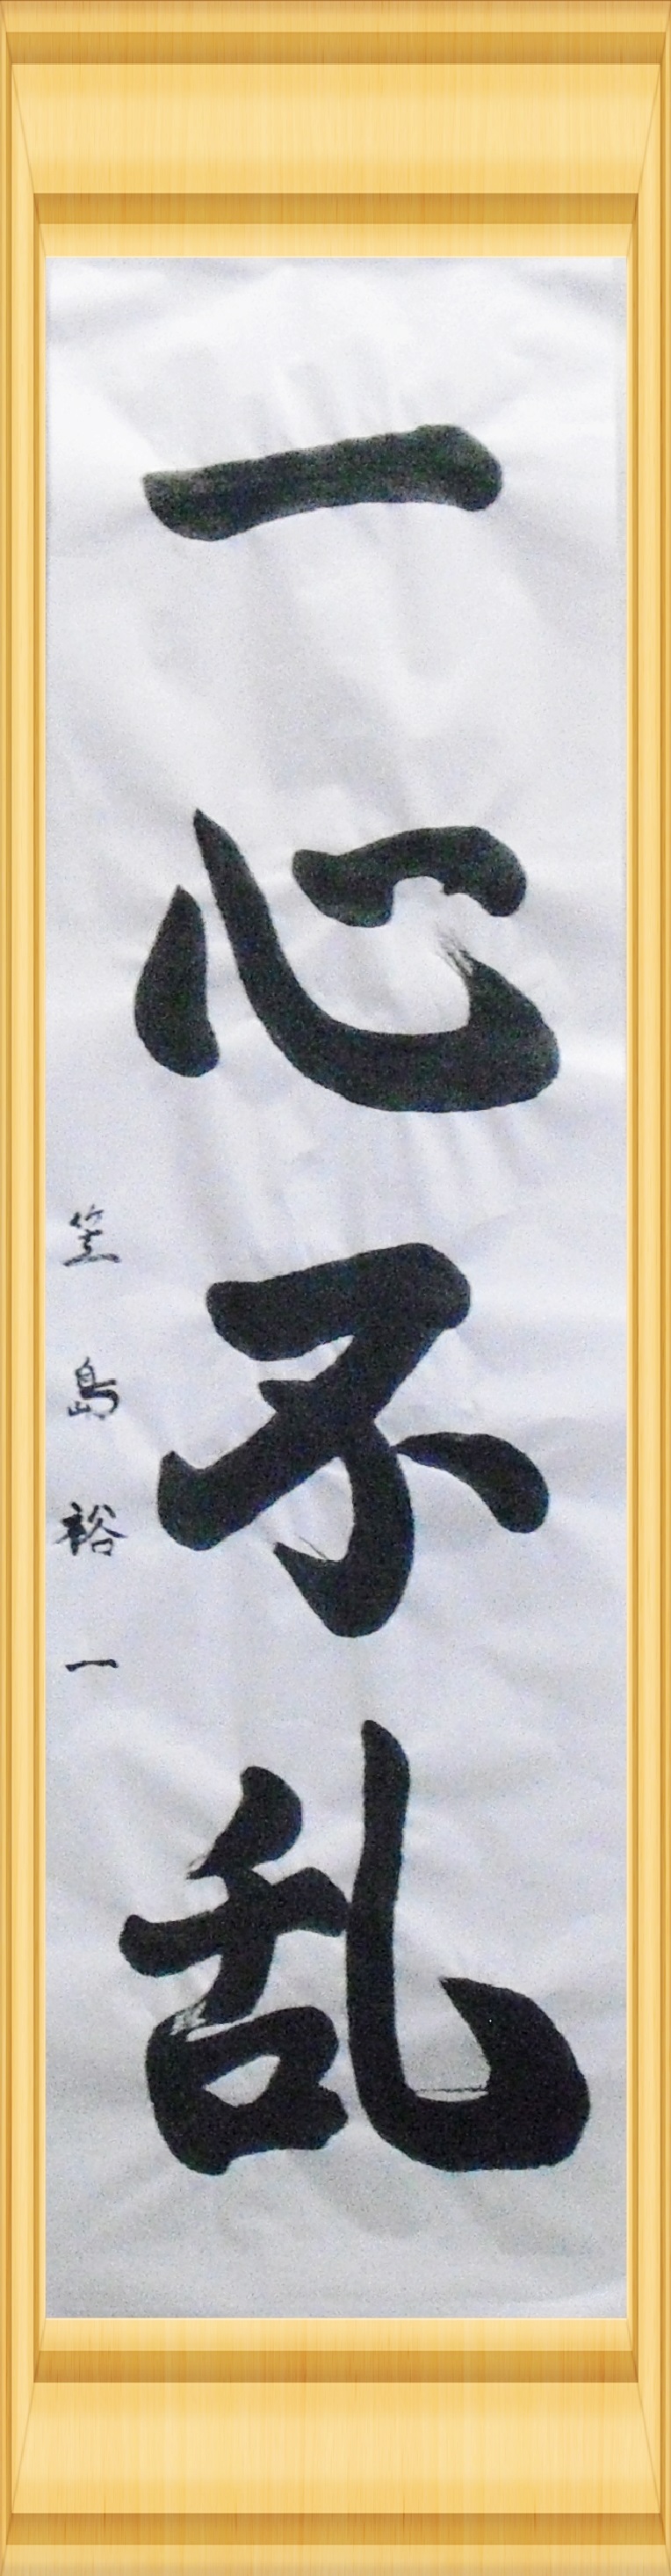 一心不乱
笠島裕一